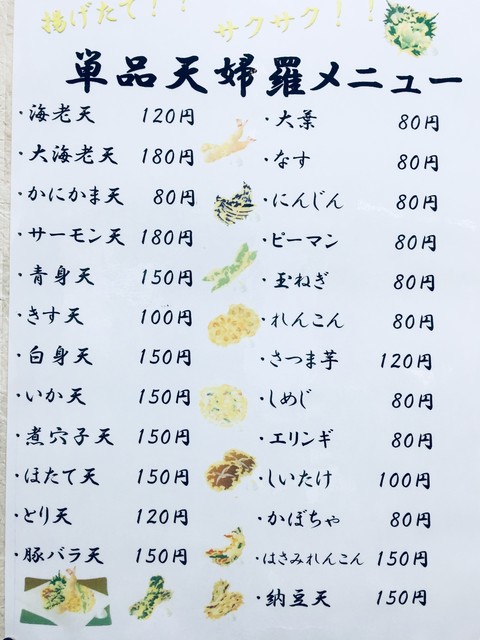 揚げたて！！
サクサク！！
単品天婦羅メニュー
・海老天 120円
・大海老天 180円
・かにかま天 80円
・サーモン天 180円
・青身天 150円
・きす天 100円
・白身天 150円
・いか天 150円
・煮穴子天 150円
・ほたて天 150円
・とり天 120円
・豚バラ天 150円
・大葉 80円
・なす 80円
・にんじん 80円
・ピーマン 80円
・玉ねぎ 80円
・れんこん 80円
・さつま芋 120円
・しめじ 80円
・エリンギ 80円
・しいたけ 100円
・かぼちゃ 80円
・はさみれんこん 150円
・納豆天 150円